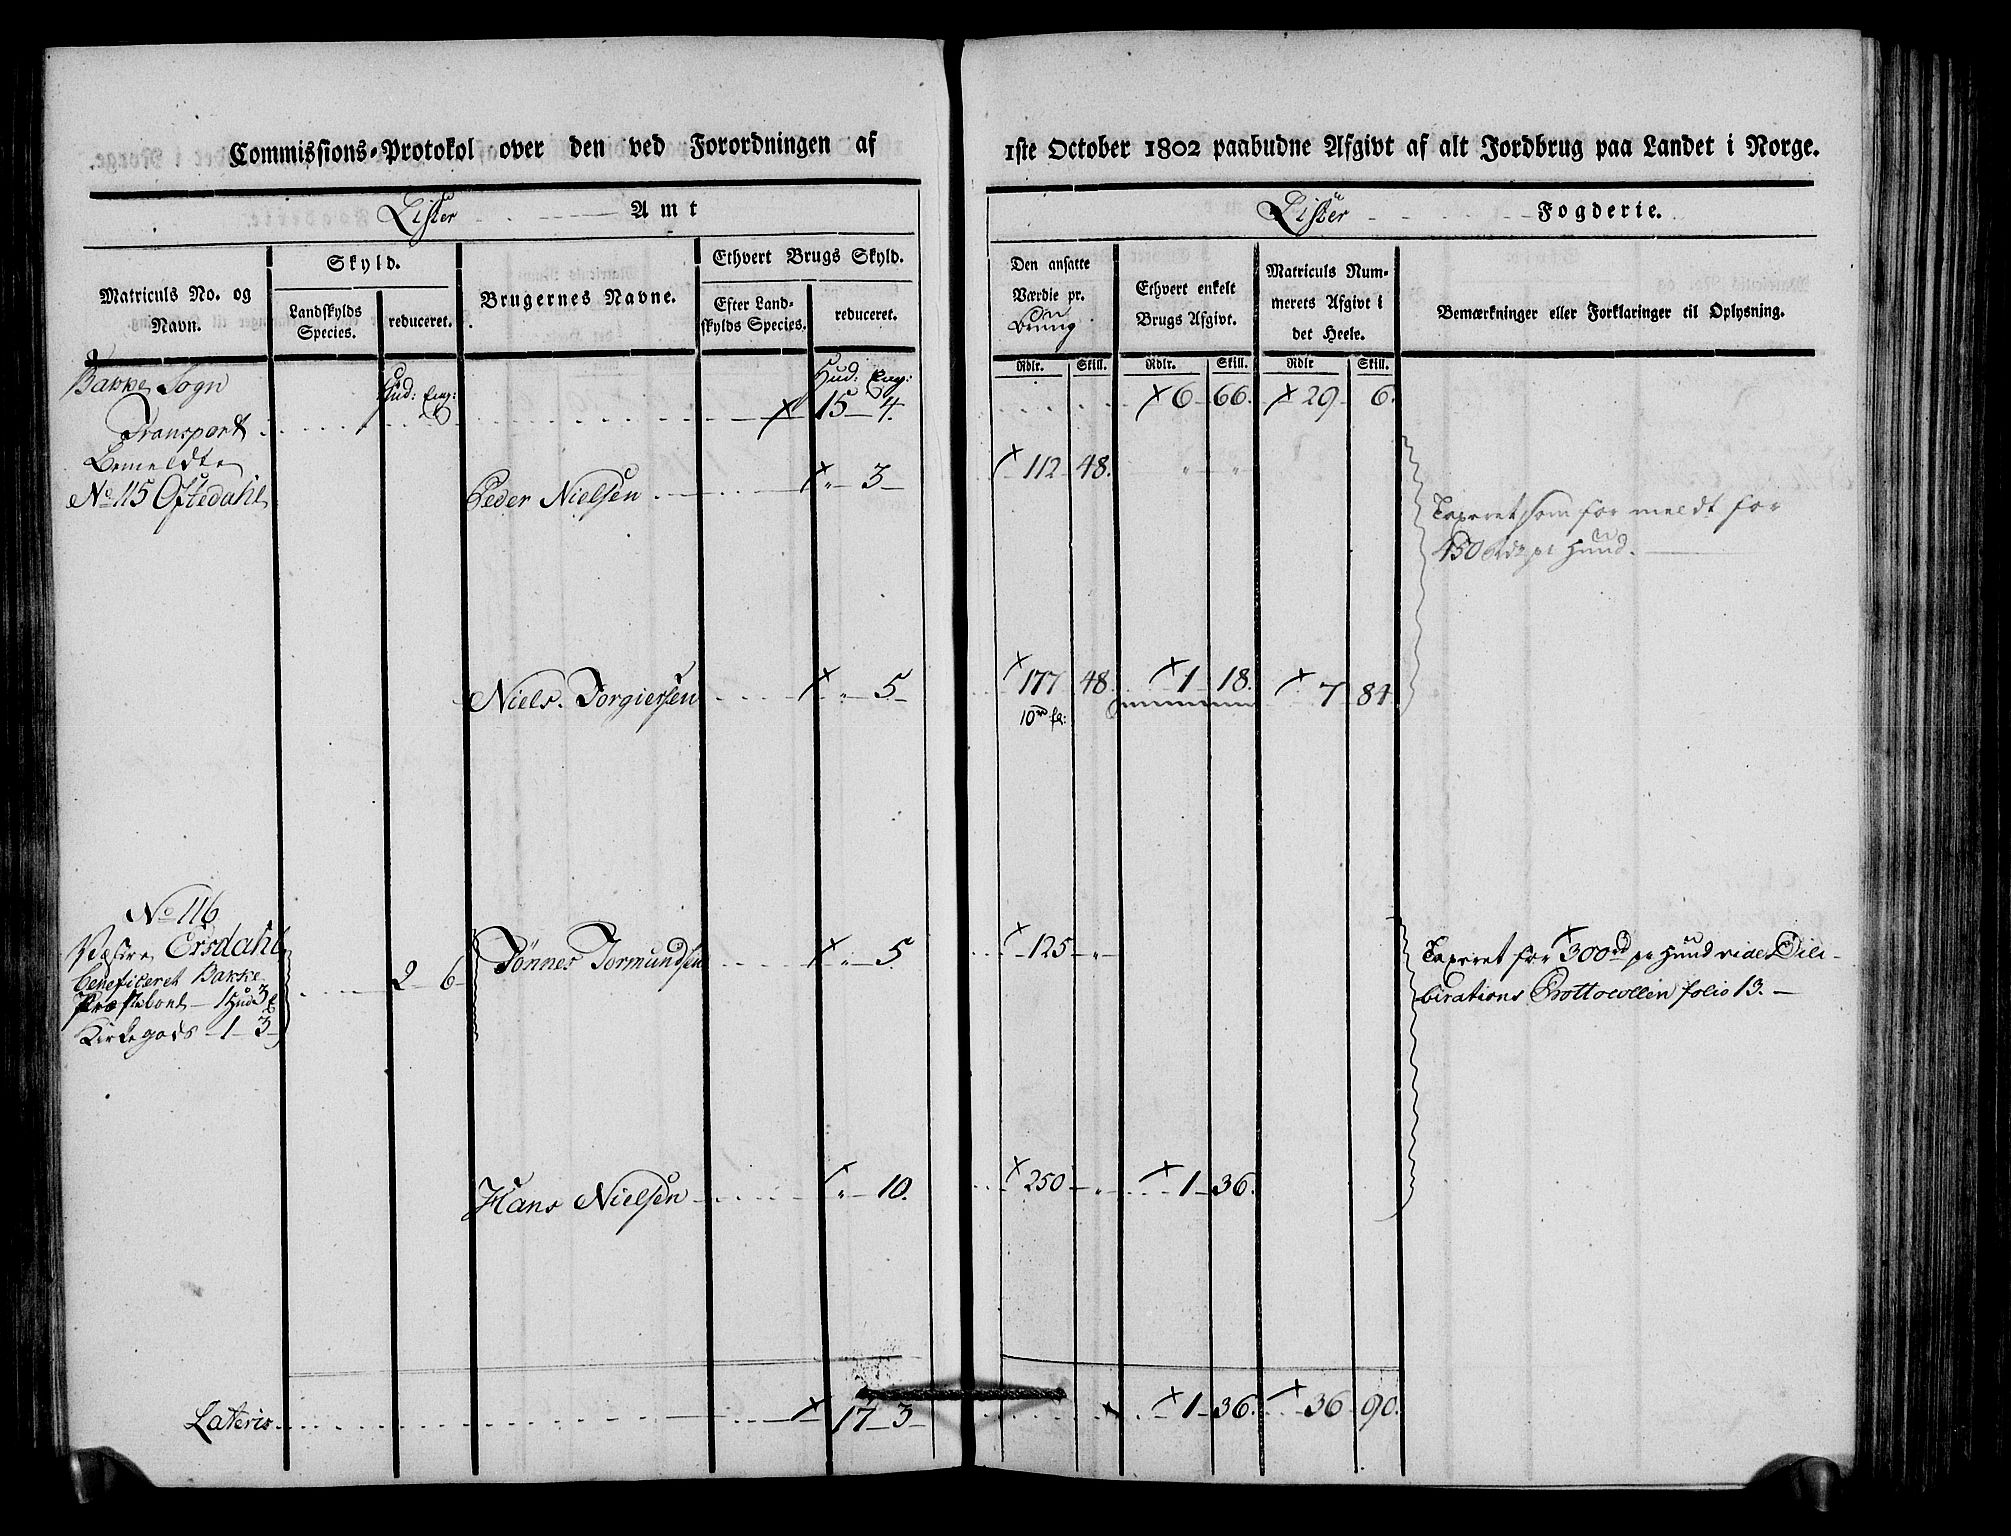 Commissions-Protokol over den ved Forordningen af
Lister Amt
Matriculs No. og Navn.
Skyld.
Landskylds Species.
reduceret.
Brugernes Navne.
Ethvert Brugs Skyld.
Efter Landskylds Species.
reduceret.
Bakke Sogn
Hud: Eng:
Hud: Eng:
Transport × 15 4.
Bemeldte
No 115 Oftedahl
Peder Nielsen × " 3
Niels Torgiersen × " 5
No 116
Vestre Ersdahl
beneficeret Bakke
Præstebont 1 Hud 3 E
Kirkegods 1 3
2 6
Tönnes Tormundsen × " 5
Hans Nielsen × " 10.
Lateris × 17 3
1ste October 1802 paabudne Afgivt af alt Jordbrug paa Landet i Norge.
Lister Fogderie.
Den ansatte Værdie pr.
Brug
Ethvert enkelt Brugs Afgivt.
Matriculs Nummerets Afgivt i det Heele.
Bemærkninger eller Forklaringer til Oplysning.
Rdlr. Skill. Rdlr. Skill. Rdlr Skill.
× 6 66. × 29 6.
× 112 48. " "
Taxeret som formeldt for
450 Rdr pr Huud.
× 177 48 × 1 18. × 7 84
× 125 "
Taxeret for × 300 rd pr Huud vide Deli-
berations Prottocollen folio 13.
× 250 " × 1 36.
× 1 36. × 36 90.